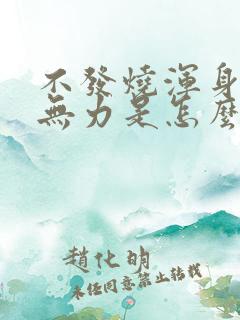 不發燒渾身
無力是怎麼
趙化明
未經同意禁止轉載